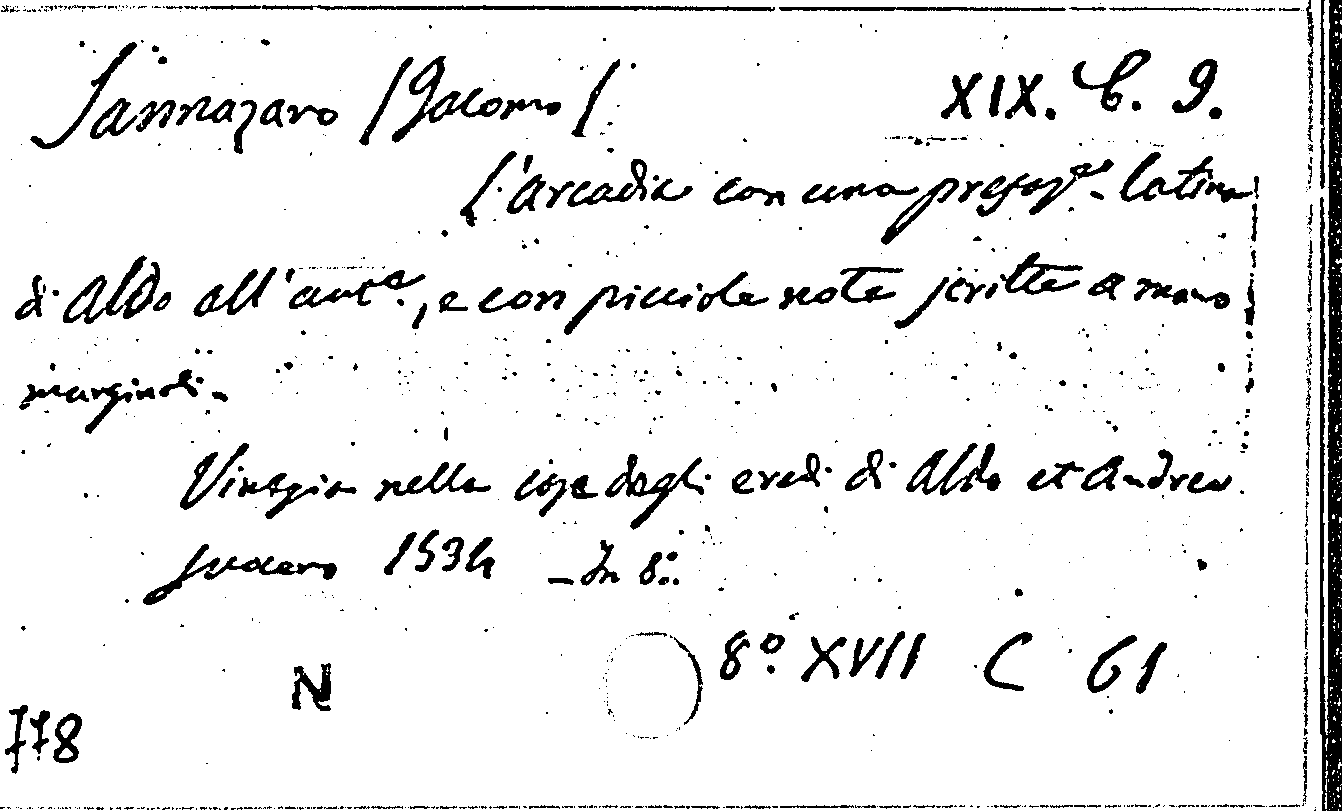 Sannazaro /Jacomo/ XIX. C. 9.
L'arcadia con una prefazᵉ. latina
di Aldo all'autᵉ., e con picciole note scritte a mano
marginali.
Vinegia nelle case degli eredi di Aldo et Andrea
suocero 1534 - In 8:.
8º. XVII C 61
N
778